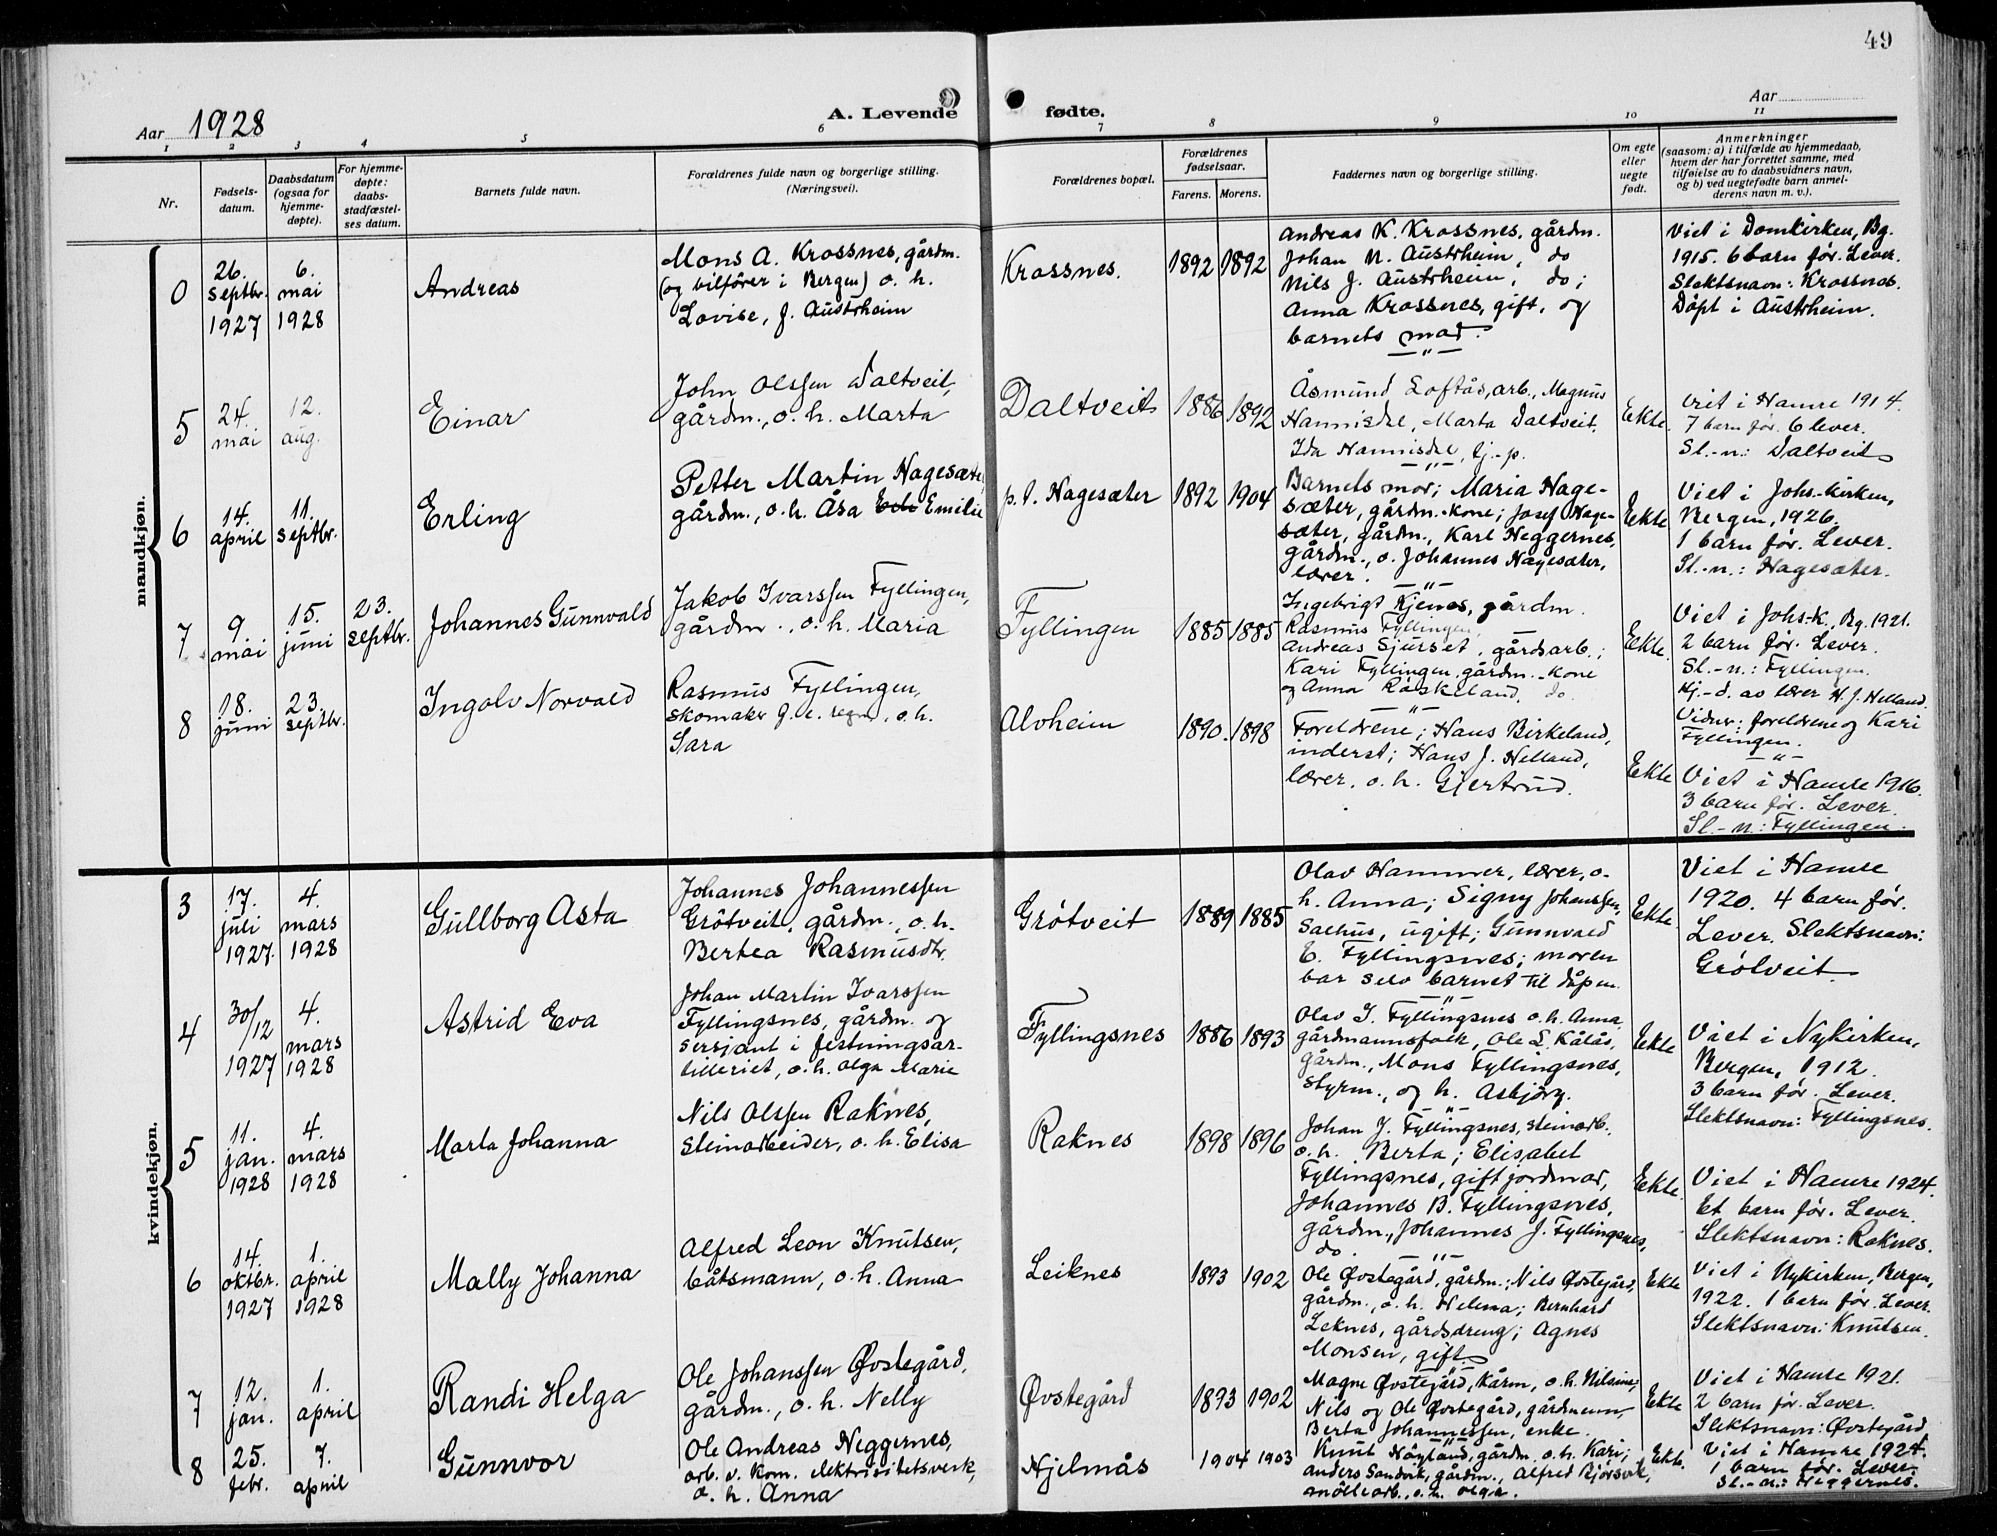 49
Aar 1928
A. Levende fødte.
Aar
1 2 3 4 5 6 7 8 9 10 11
Nr.
Fødsels-
datum.
Daabsdatum
(ogsaa for
hjemme-
døpte).
For hjemme-
døpte:
daabs-
stadfæstel-
ses datum.
Barnets fulde navn.
Forældrenes fulde navn og borgerlige stilling.
(Næringsvei).
Forældrenes bopæl.
Forældrenes
fødselsaar.
Farens. Morens.
Faddernes navn og borgerlige stilling.
Om egte
eller
uegte
født.
Anmerkninger
(saasom: a) i tilfælde av hjemmedaab,
hvem der har forrettet samme, med
tilføielse av to daabsvidners navn,
og b) ved uegtefødte barn anmel-
derens navn m. v.).
mandkjøn.
0
26.
septbr.
1927
6.
mai
1928
Andreas
Mons A. Krossnes, gårdm.
(og bilfører i Bergen) o. h.
Lovise, f. Austrheim
Krossnes.
1892 1892
Andreas K. Krossnes, gårdm.
Johan N. Austrheim, do
Nils J. Austrheim, do;
Anna Krossnes, gift, og
barnets mor.
Viet i Domkirken, Bg.
1915. 6 barn før. Lever.
Slektsnavn: Krossnes.
Døpt i Austrheim.
5
24.
mai
12.
aug.
Einar
John Olssen Daltveit,
gårdm., o. h. Marta
Daltveit
1886 1892
Åsmund Loftås, arb., Magnus
Hannisdal, Marta Daltveit.
Ida Hannisdal, tj.-p.
Ekte.
Viet i Hamre 1914.
7 barn før. 6 lever.
Sl.-n.: Daltveit
6
14.
april
11.
septbr.
Erling
Petter Martin Hagesæter,
gårdm., o. h. Åsa Emilie
p.t. Hagesæter
1892 1904
Barnets mor; Maria Hage-
sæter, gårdm.-kone; Josef Hage-
sæter, gårdm., Karl Heggernes,
gårdm., o. Johannes Hagesæter,
lærer.
Ekte
Viet i Johs-kirken,
Bergen, 1926.
1 barn før. Lever.
Sl.-n.: Hagesæter.
7
9
mai
15.
juni
23.
septbr.
Johannes Gunnvald
Jakob Ivarssen Fyllingen,
gårdm., o. h. Maria
Fyllingen
1885 1885
Ingebrigt Kjenes, gårdm.
Rasmus Fyllingen,
Andreas Sjurset, gårdsarb.;
Kari Fyllingen, gårdm.-kone
og Anna Røskeland, do.
Ekte.
Viet i Johs-k., Bg. 1921.
2 barn før. Lever.
Sl.-n.: Fyllingen.
Hj.-d. av lærer H. J. Helland.
Vidner: foreldrene og Kari
Fyllingen.
8
18.
juni
23.
septbr.
Ingolv Norvald
Rasmus Fyllingen,
skomaker o. h.
Sara
Alvheim
1890. 1898
Foreldrene; Hans Birkeland,
inderst; Hans J. Helland,
lærer, o. h. Gjertrud.
Ekte
Viet i Hamre 1916.
3 barn før. Lever.
Sl.-n.: Fyllingen.
kvindekjøn.
3
17.
juli
1927.
4.
mars
1928
Gullborg Asta
Johannes Johannessen
Grøtveit, gårdm., o. h.
Bertea Rasmusdtr.
Grøtveit
1889 1885
Olav Hammer, lærer, o.
h. Anna; Signy Johanssen,
Salhus, ugift; Gunnvald
E. Fyllingsnes; moren
bar selv barnet til dåpen.
Ekte.
Viet i Hamre
1920. 4 barn før.
Lever. Slektsnavn:
Grøtveit
4
30/12
1927
4.
mars
1928
Astrid Eva
Johan Martin Ivarssen
Fyllingsnes, gårdm. og
sersjant i festningsar-
tilleriet, o. h. Olga Marie
Fyllingsnes
1886 1893
Olav I. Fyllingsnes o. h. Anna,
gårdmannsfolk, Ole L. Kålås,
gårdm., Mons Fyllingsnes,
styrm., og h. Asbjørg.
Ekte
Viet i Nykirken,
Bergen, 1912.
3 barn før. Lever.
Slektsnavn: Fyllingsnes.
5
11.
jan.
1928
4.
mars
1928
Marta Johanna
Nils Olssen Raknes,
steinarbeider, o. h. Elisa
Raknes
1898 1896
Johan J. Fyllingsnes, steinarb.
o. h. Berta; Elisabet
Fyllingsnes, gift jordmor,
Johannes B. Fyllingsnes,
gårdm., Johannes J. Fyllingsnes,
do.
Ekte.
Viet i Hamre 1924.
Et barn før. Lever.
Slektsnavn: Raknes.
6
14.
oktbr.
1927
1.
april
1928
Mally Johanna
Alfred Leon Knutsen,
båtsmann, o. h. Anna
Leiknes
1893 1902
Ole Øvstegård, gårdm.; Nils Øvstegård,
gårdm., o. h. Helena; Bernhard
Leknes, gårdsdreng; Agnes
Monsen, gift.
Ekte
Viet i Nykirken, Bergen,
1922. 1 barn før. Lever.
Slektsnavn: Knutsen.
7
12.
jan.
1.
april
Randi Helga
Ole Johanssen Øvstegård,
gårdm., o. h. Nelly
Øvstegård
1893 1902
Magne Øvstegård, Kårm, o. h. Nilsine;
Nils og Ole Øvstegård, gårdmenn,
Berta Johannessen, enke.
Ekte
Viet i Hamre 1921.
2 barn før. Lever.
Slektsnavn: Øvstegård
8
25.
febr.
7.
april
Gunnvor
Ole Andreas Heggernes,
arb. v. kom. elektrisitetsverk,
o. h. Anna
Hjelmås
1904 1903
Knut Høyland, gårdm. o. h. Kari;
Anders Sandvik, gårdm., Alfred Bjørsvik,
møllearb., o. h. Olga.
Ekte.
Viet i Hamre 1924.
1 barn før. Lever.
Sl.-n.: Heggernes.